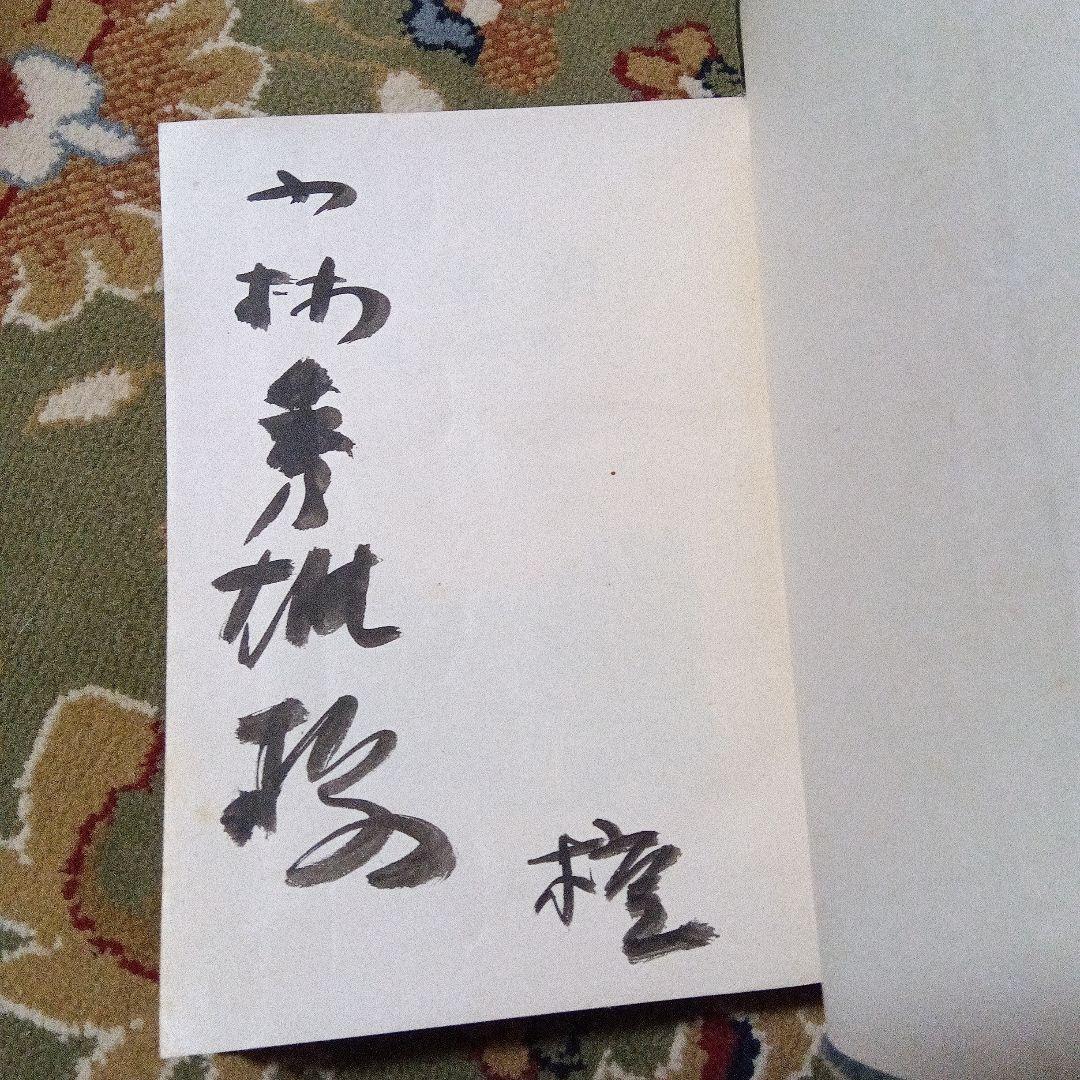 檀
小林秀雄様